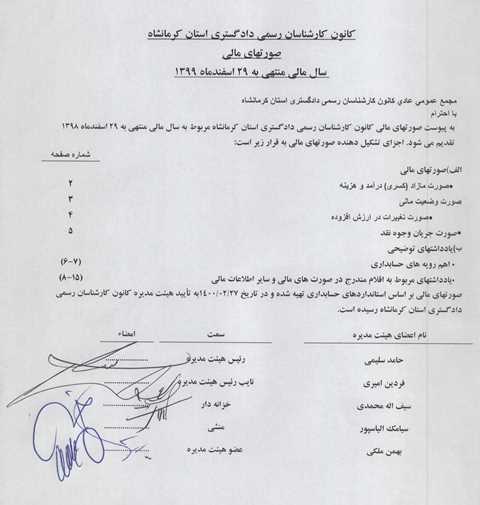 کانون کارشناسان رسمی دادگستری استان کرمانشاه
صورتهای مالی
سال مالی منتهی به ۲۹ اسفندماه ۱۳۹۹
مجمع عمومی عادی کانون کارشناسان رسمی دادگستری استان کرمانشاه
با احترام
به پیوست صورتهای مالی کانون کارشناسان رسمی دادگستری استان کرمانشاه مربوط به سال مالی منتهی به ۲۹ اسفندماه ۱۳۹۸
تقدیم می شود. اجزای تشکیل دهنده صورتهای مالی به قرار زیر است:
شماره صفحه
الف)صورتهای مالی
•صورت مازاد (کسری) درآمد و هزینه ۲
صورت وضعیت مالی ۳
•صورت تغییرات در ارزش افزوده ۴
•صورت جریان وجوه نقد ۵
ب)یادداشتهای توضیحی
• اهم رویه های حسابداری (۶-۷)
•یادداشتهای مربوط به اقلام مندرج در صورت های مالی و سایر اطلاعات مالی (۸-۱۵)
صورتهای مالی بر اساس استانداردهای حسابداری تهیه شده و در تاریخ ۱۴۰۰/۰۲/۲۷به تأیید هیئت مدیره کانون کارشناسان رسمی
دادگستری استان کرمانشاه رسیده است.
نام اعضای هیئت مدیره سمت امضاء
حامد سلیمی رئیس هیئت مدیره
فردین امیری نایب رئیس هیئت مدیره
سیف اله محمدی خزانه دار
سیامک الیاسپور منشی
بهمن ملکی عضو هیئت مدیره